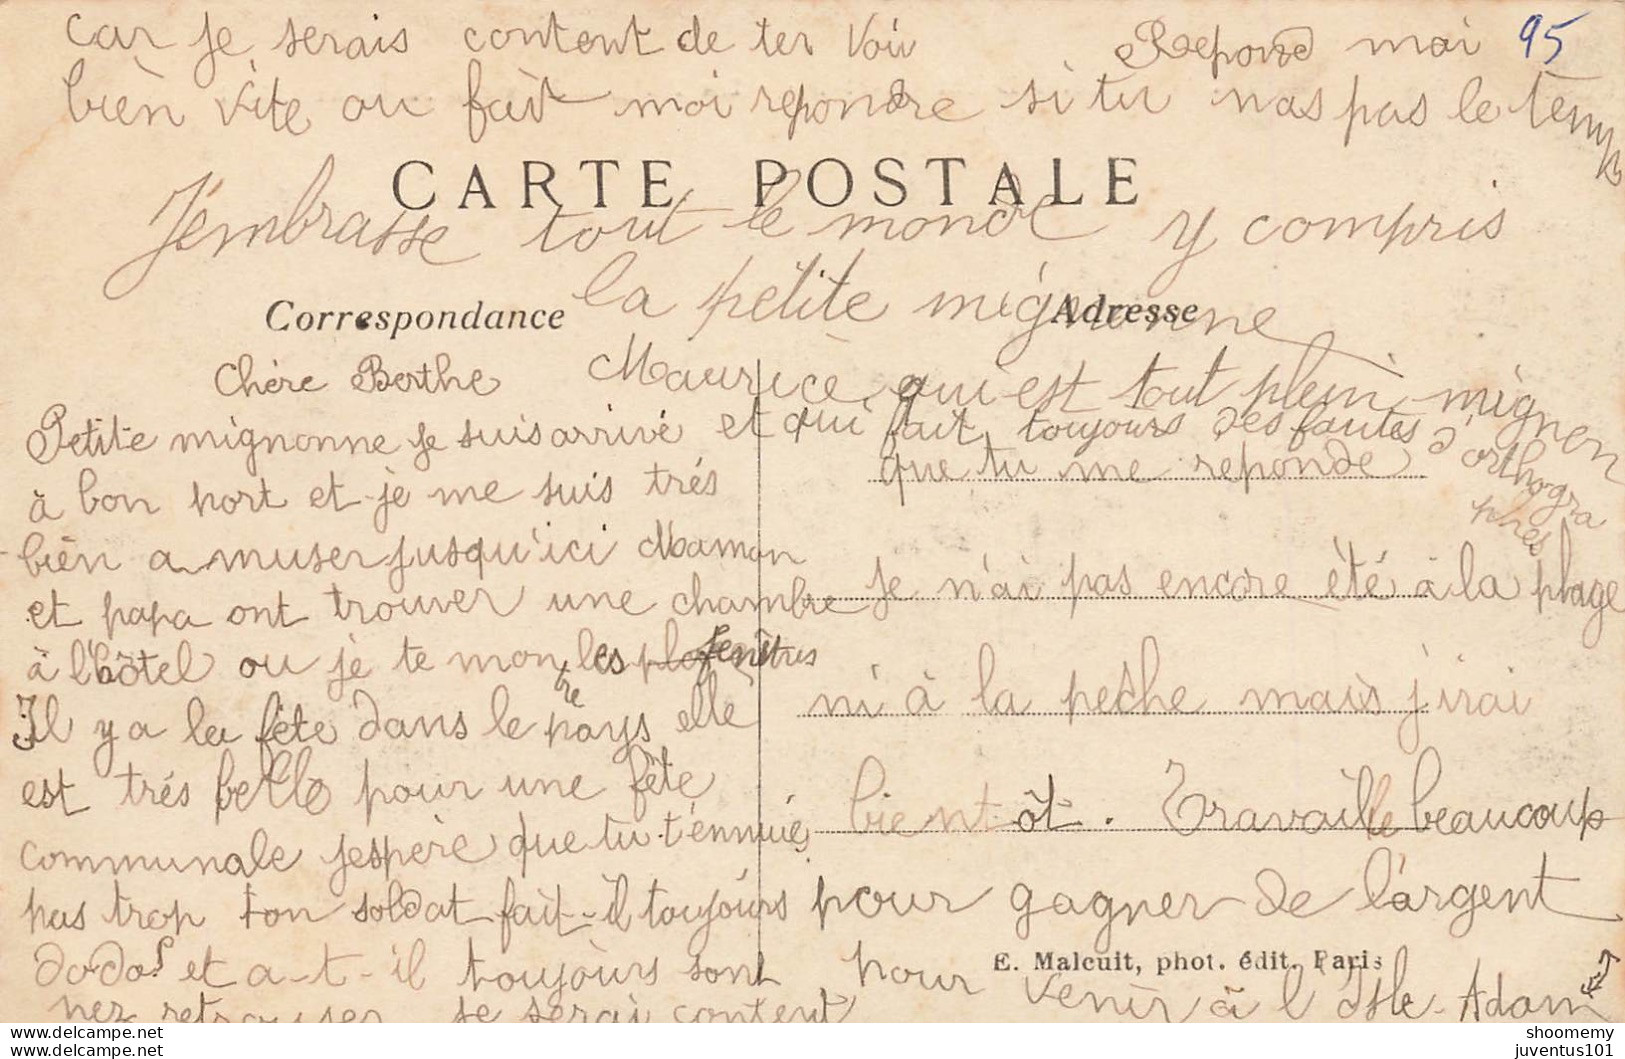 car je serais content de ter voir Reponsd moi 95
bièn vite ou fait moi repondre si tu nas pas le temps
CARTE POSTALE
J'émbrasse tout le monde y compris
la pétite mignonne
Correspondance
Adresse
Chère Berthe
Maurice qui est tout plein mignon
et qui fait toujours des fautes d'orthogra
phes
Petite mignonne je suis arrivé
à bon port et je me suis trés
bièn a muser jusqu'ici Maman
et papa ont trouver une chambre
à l'hôtel ou je te montre les fenêtres
Il y a la fête dans le pays elle
est trés belle pour une fête
communale jespère que tu t'ennuié
pas trop ton soldat fait-il toujours
dodo et a-t-il toujours sont
nez retrousser je serai content
que tu me reponde
je n'ai pas encore été à la plage
ni à la pêche mais j'irai
bientôt. Travaille beaucoup
pour gagner de l'argent
E. Malcuit, phot. édit. Paris
pour venir à l'Isle-Adam
shoomemy
juventus101